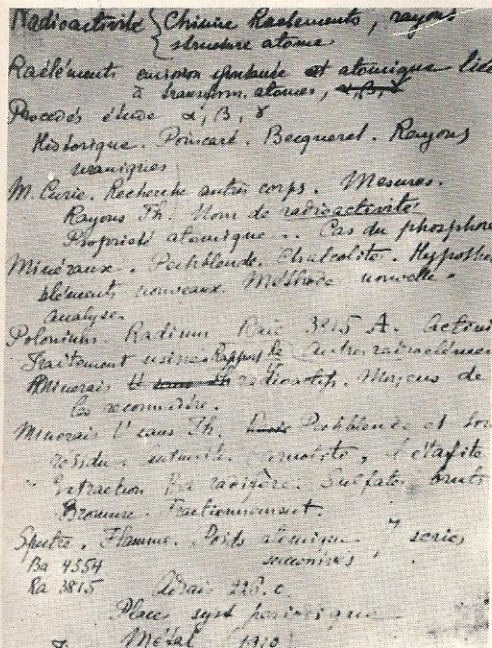 Radioactivité { Chimie Raéléments, rayons
structure atome
Raéléments émission spontanée et atomique liée
à transform. atomes, α, β, γ
Procédés étude α, β, γ
Historique. Poincaré. Becquerel. Rayons
uraniques
M. Curie. Recherche autres corps. Mesures.
Rayons Th. Nom de radioactivité
Propriété atomique. Cas du phosphore
Minéraux. Pechblende. Chalcolite. Hypothè
éléments nouveaux Méthode nouvelle
analyse.
Polonium. Radium Raie 3815 A. Actini
Traitement usine. Rapport Autres radioélémen
Minerais radioactifs. Moyens de
les reconnaître.
Minerais U sans Th. Pechblende et son
résidu
Extraction Ra Sulfates bruts
Bromure. Fractionnement.
Spectre. Flamme. Poids atomique 7 séries
Ba 4554 successives
Ra 3815 226.0
Place syst périodique
Métal (1910)